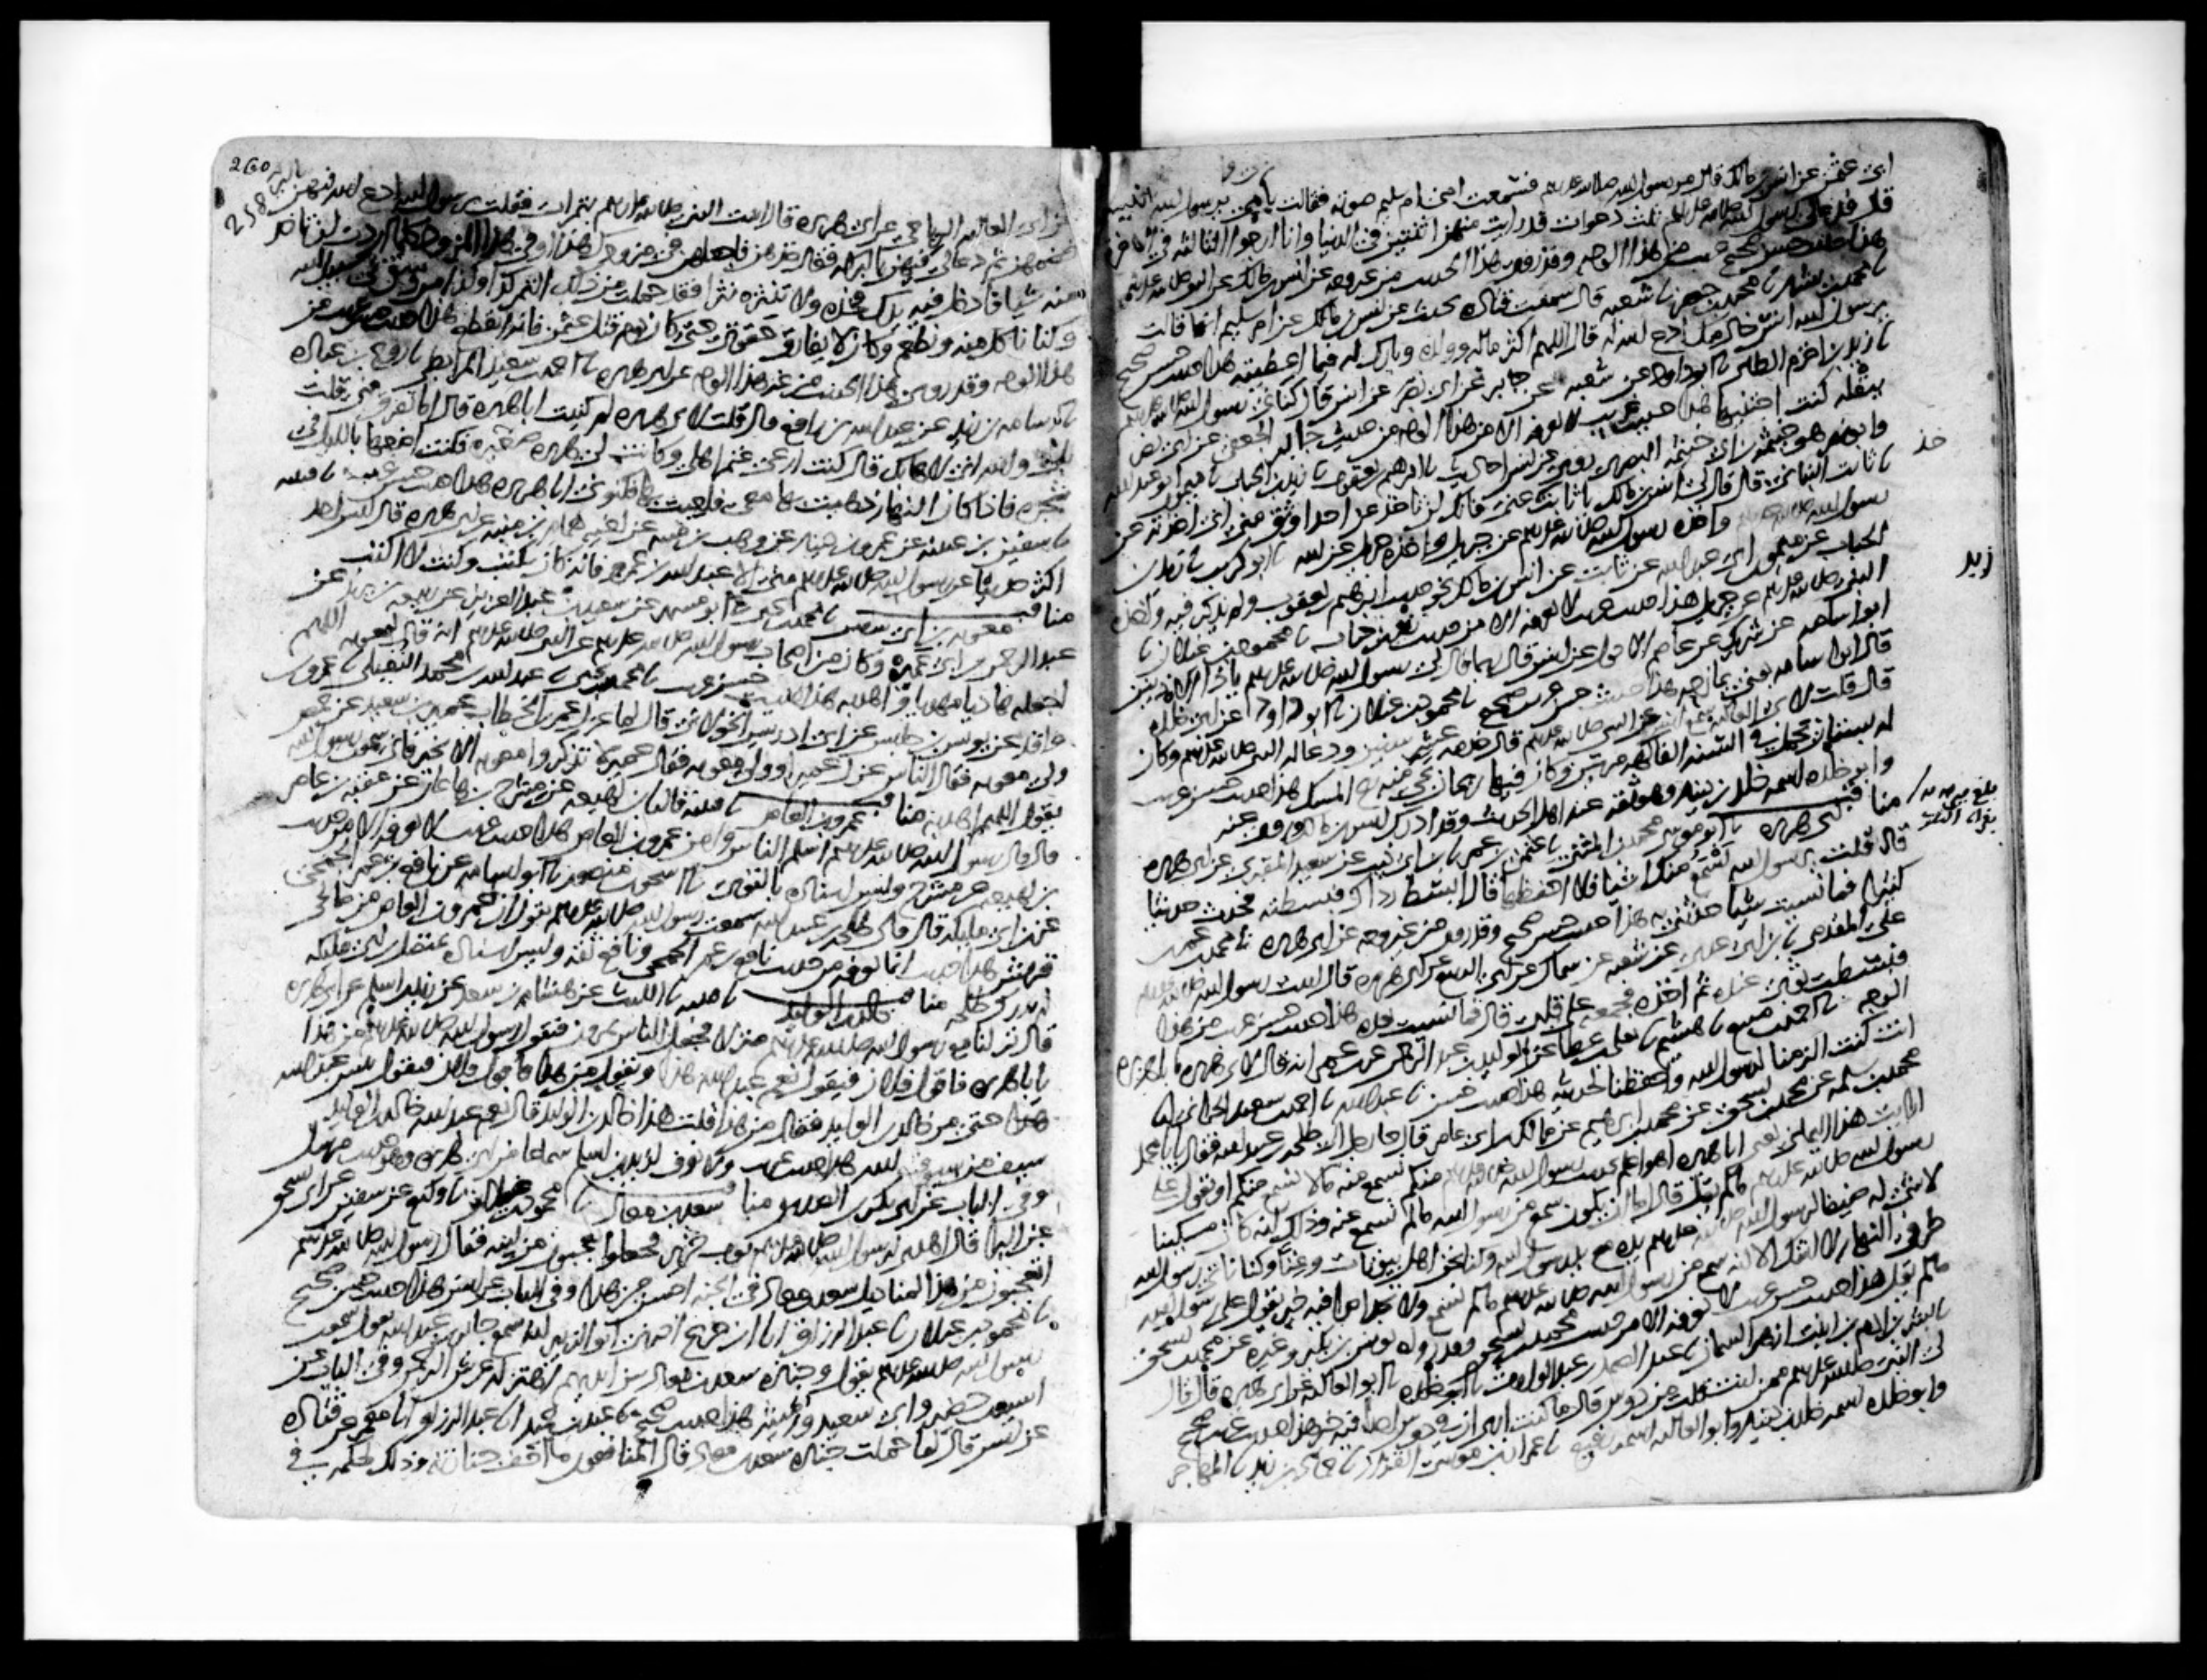 ابي عثمن عن انس بن مالك قال مر رسول الله صلى الله عليه وسلم فسمعت امي ام سليم صوته فقالت بابي يرسول الله انيس
قال فدعا لي رسول الله صلى الله عليه وسلم ثلث دعوات قد رايت منهن اثنتين في الدنيا وانا ارجوا الثالثة في الاخرة
هذا حديث حسن صحيح غريب من هذا الوجه وقد روي هذا الحديث من غير وجه عن انس بن مالك عن النبي صلى الله عليه وسلم
نا محمد بن بشار نا محمد بن جعفر نا شعبة قال سمعت قتادة يحدث عن انس بن مالك عن ام سليم انها قالت
يرسول الله انس خادمك ادع الله له قال اللهم اكثر ماله وولده وبارك له فيما اعطيته هذا حديث حسن صحيح
نا زيد بن اخزم الطائي نا ابو داود عن شعبة عن جابر عن ابي نصر عن انس قال كناني رسول الله صلى الله عليه وسلم
ببقلة كنت اجتنيها هذا حديث غريب لا نعرفه الا من هذا الوجه من حديث جابر الجعفي عن ابي نصر
وابو نصر هو خيثمة بن ابي خيثمة البصري روى عن انس احاديث نا ابرهيم بن يعقوب نا زيد بن الحباب نا ميمون ابو عبد الله
نا ثابت البناني قال قال لي انس بن مالك يا ثابت خذ عني فانك لن تاخذ عن احد اوثق مني اني اخذته عن
خذ
رسول الله صلى الله عليه وسلم واخذه رسول الله صلى الله عليه وسلم عن جبريل واخذه جبريل عن الله نا ابو كريب نا زيد بن
الحباب عن ميمون ابي عبد الله عن ثابت عن انس بن مالك نحو حديث ابرهيم بن يعقوب ولم يذكر فيه واخذه
زيد
النبي صلى الله عليه وسلم عن جبريل هذا حديث غريب لا نعرفه الا من حديث زيد بن حباب نا محمود بن غيلان نا
ابو اسامة عن شريك عن عاصم الاحول عن انس قال ربما قال لي رسول الله صلى الله عليه وسلم يا ذا الاذنين
قال ابو اسامة يعني يمازحه هذا حديث حسن غريب صحيح نا محمود بن غيلان نا ابو داود عن ابي خلدة
قال قلت لابي العالية سمع انس من النبي صلى الله عليه وسلم قال خدمه عشر سنين ودعا له النبي صلى الله عليه وسلم وكان
له بستان يحمل في السنة الفاكهة مرتين وكان فيها ريحان يجي منه ريح المسك هذا حديث حسن غريب
وابو خلدة اسمه خالد بن دينار وهو ثقة عند اهل الحديث وقد ادرك انس بن مالك وروى عنه
مناقب لابي هريرة نا ابو موسى محمد بن المثنى نا عثمن بن عمر نا ابن ابي ذئب عن سعيد المقبري عن ابي هريرة
قال قلت يرسول الله اسمع منك اشيا فلا احفظها قال ابسط رداك فبسطته فحدث حديثا
كثيرا فما نسيت شيا حدثني به هذا حديث حسن صحيح وقد روي من غير وجه عن ابي هريرة نا محمد بن عمر بن
علي المقدمي نا ابن ابي عدي عن شعبة عن سماك عن ابي الربيع عن ابي هريرة قال اتيت رسول الله صلى الله عليه وسلم
فبسطت ثوبي عنده ثم اخذه فجمعه على قلبي قال فما نسيت بعده هذا حديث حسن غريب من هذا
الوجه نا احمد بن منيع نا هشيم نا يعلى بن عطا عن الوليد بن عبد الرحمن عن ابن عمر انه قال لابي هريرة يا ابا هريرة
انت كنت الزمنا لرسول الله واحفظنا لحديثه هذا حديث حسن نا عبد الله نا احمد بن سعيد الحراني نا
محمد بن سلمة عن محمد بن اسحق عن محمد بن ابرهيم عن مالك بن ابي عامر قال جا رجل الى طلحة بن عبيد الله فقال يابا محمد
ارايت هذا اليماني يعني ابا هريرة اهو اعلم بحديث رسول الله صلى الله عليه وسلم منكم نسمع منه ما لا نسمع منكم او يقول على
رسول الله صلى الله عليه وسلم ما لم يقل قال اما ان يكون سمع من رسول الله ما لم نسمع عنه وذاك انه كان مسكينا
لا شي له ضيفا لرسول الله صلى الله عليه وسلم يده مع يد رسول الله وكنا نحن اهل بيوتات وغنا وكنا ناتي رسول الله
طرفي النهار لا اشك الا انه سمع من رسول الله صلى الله عليه وسلم ما لم نسمع ولا تجد احدا فيه خير يقول على رسول الله
ما لم يقل هذا حديث حسن غريب لا نعرفه الا من حديث محمد بن اسحق وقد رواه يونس بن بكير وغيره عن محمد بن اسحق
نا بشر بن ادم بن ابنت ازهر السمان نا عبد الصمد بن عبد الوارث نا ابو خلدة نا ابو العالية عن ابي هريرة قال قال
لي النبي صلى الله عليه وسلم ممن انت قلت من دوس قال ما كنت ارى ان في دوس احدا فيه خير هذا حديث غريب صحيح
وابو خلدة اسمه خالد بن دينار وابو العالية اسمه رفيع نا عمران بن موسى القزاز نا حماد بن زيد نا المهاجر
260
258
عن ابي العالية الرياحي عن ابي هريرة قال اتيت النبي صلى الله عليه وسلم بتمرات فقلت يرسول الله ادع الله فيهن بالبركة
فضمهن ثم دعا لي فيهن بالبركة فقال خذهن فاجعلهن في مزودك هذا او في هذا المزود كلما اردت ان تاخذ
منه شيا فادخل فيه يدك فخذه ولا تنثره نثرا فقد حملت من ذلك التمر كذا وكذا من وسق في سبيل الله
وكنا ناكل منه ونطعم وكان لا يفارق حقوي حتى كان يوم قتل عثمن فانه انقطع هذا حديث حسن غريب من
هذا الوجه وقد روي هذا الحديث من غير هذا الوجه عن ابي هريرة نا احمد بن سعيد المرابطي نا روح بن عبادة
نا اسامة بن زيد عن عبد الله بن رافع قال قلت لابي هريرة لم كنيت ابا هريرة قال اما تفرق مني قلت
بلى والله اني لاهابك قال كنت ارعى غنم اهلي وكانت لي هريرة صغيرة فكنت اضعها بالليل في
شجرة فاذا كان النهار ذهبت بها معي فلعبت بها فكنوني ابا هريرة هذا حديث حسن غريب نا قتيبة
نا سفين بن عيينة عن عمرو بن دينار عن وهب بن منبه عن اخيه همام بن منبه عن ابي هريرة قال ليس احد
اكثر حديثا عن رسول الله صلى الله عليه وسلم مني الا عبد الله بن عمرو فانه كان يكتب وكنت لا اكتب
مناقب معوية بن ابي سفين نا محمد بن يحيى نا ابو مسهر عن سعيد بن عبد العزيز عن ربيعة بن يزيد عن
عبد الرحمن بن ابي عميرة وكان من اصحاب رسول الله صلى الله عليه وسلم عن النبي صلى الله عليه وسلم انه قال لمعوية اللهم
اجعله هاديا مهديا واهد به هذا حديث حسن غريب نا محمد بن يحيى نا عبد الله بن محمد النفيلي نا عمرو بن
واقد عن يونس بن حلبس عن ابي ادريس الخولاني قال لما عزل عمر بن الخطاب عمير بن سعيد عن حمص
ولى معوية فقال الناس عزل عميرا وولى معوية فقال عمير لا تذكروا معوية الا بخير فاني سمعت رسول الله
يقول اللهم اهد به مناقب عمرو بن العاص نا قتيبة قال نا ابن لهيعة عن مشرح بن هاعان عن عقبة بن عامر
قال قال رسول الله صلى الله عليه وسلم اسلم الناس وامن عمرو بن العاص هذا حديث غريب لا نعرفه الا من حديث
بن لهيعة عن مشرح وليس اسناده بالقوي نا اسحق بن منصور نا ابو اسامة عن نافع بن عمر الجمحي
عن ابن ابي مليكة قال قال طلحة بن عبيد الله سمعت رسول الله صلى الله عليه وسلم يقول ان عمرو بن العاص من صالحي
قريش هذا حديث انما نعرفه من حديث نافع بن عمر الجمحي ونافع ثقة وليس اسناده بمتصل ابن ابي مليكة
لم يدرك طلحة مناقب خالد بن الوليد نا قتيبة نا الليث عن هشام بن سعد عن زيد بن اسلم عن ابي هريرة
قال نزلنا مع رسول الله صلى الله عليه وسلم منزلا فجعل الناس يمرون فيقول رسول الله صلى الله عليه وسلم من هذا
يابا هريرة فاقول فلان فيقول نعم عبد الله هذا ويقول من هذا فاقول فلان فيقول بئس عبد الله
هذا حتى مر خالد بن الوليد فقال من هذا قلت هذا خالد بن الوليد قال نعم عبد الله خالد بن الوليد
سيف من سيوف الله هذا حديث غريب ولا نعرف لزيد بن اسلم سماعا من ابي هريرة وهو حديث مرسل
وفي الباب عن ابي بكر الصديق مناقب سعد بن معاذ نا محمود بن غيلان نا وكيع عن سفين عن ابي اسحق
عن البرا قال اهدي لرسول الله صلى الله عليه وسلم ثوب حرير فجعلوا يعجبون من لينه فقال رسول الله صلى الله عليه وسلم
اتعجبون من هذا لمناديل سعد بن معاذ في الجنة احسن من هذا وفي الباب عن انس هذا حديث حسن صحيح
نا محمود بن غيلان نا عبد الرزاق انا ابن جريج اخبرني ابو الزبير انه سمع جابر بن عبد الله يقول سمعت
رسول الله صلى الله عليه وسلم يقول وجنازة سعد بن معاذ بين ايديهم اهتز له عرش الرحمن وفي الباب عن
اسيد بن حضير وابي سعيد ورميثة هذا حديث صحيح نا عبد بن حميد انا عبد الرزاق انا معمر عن قتادة
عن انس قال لما حملت جنازة سعد بن معاذ قال المنافقون ما اخف جنازته وذلك لحكمه في